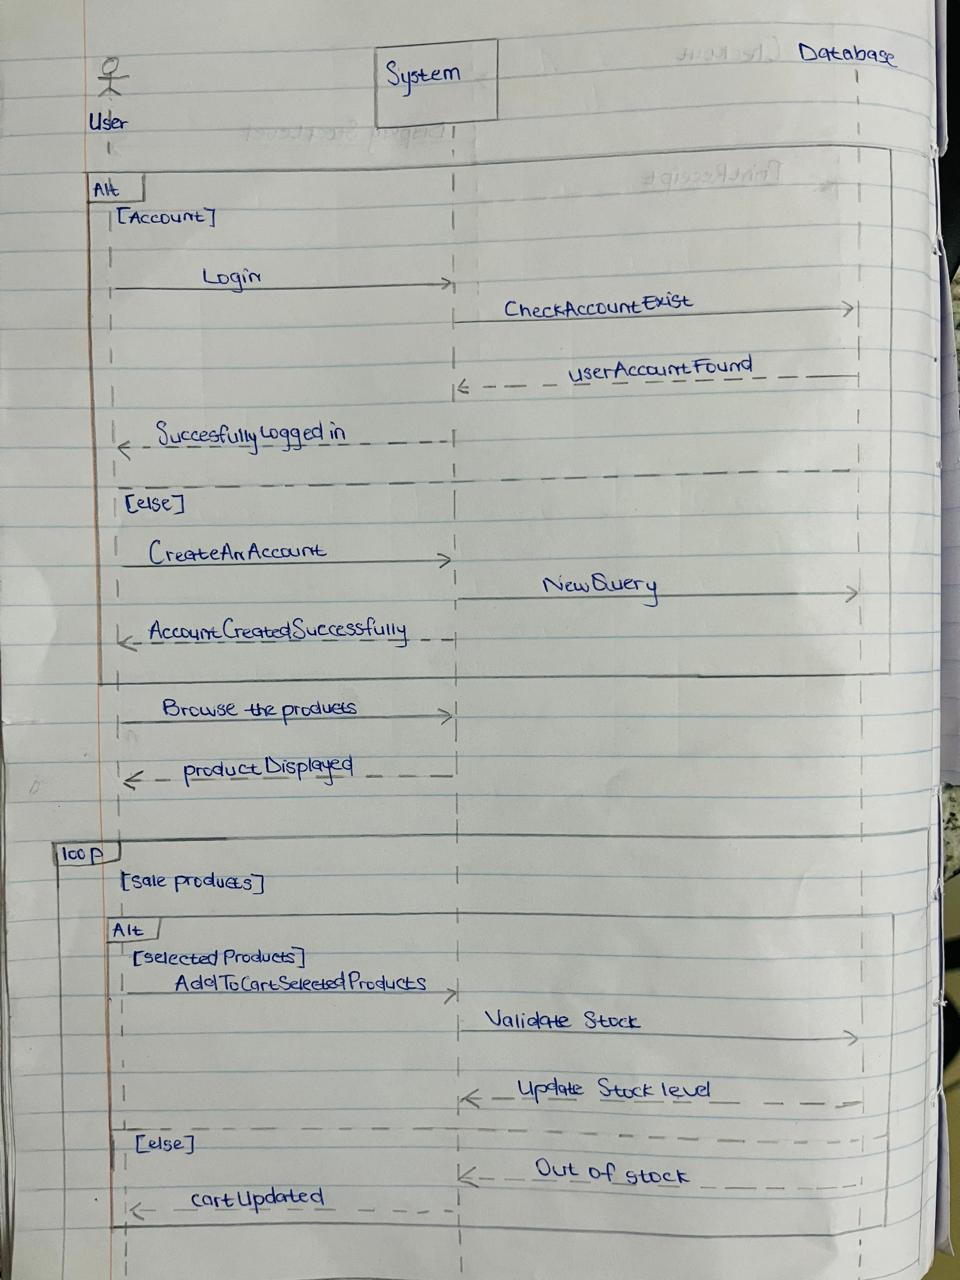 User
System
Database
Alt
[Account]
Login
CheckAccountExist
userAccountFound
SuccesfullyLogged in
[else]
CreateAnAccount
NewQuery
AccountCreatedSuccessfully
Browse the products
productDisplayed
loop
[sale products]
Alt
[selected Products]
AddToCartSelectedProducts
Validate Stock
Update Stock level
[else]
Out of stock
cartUpdated